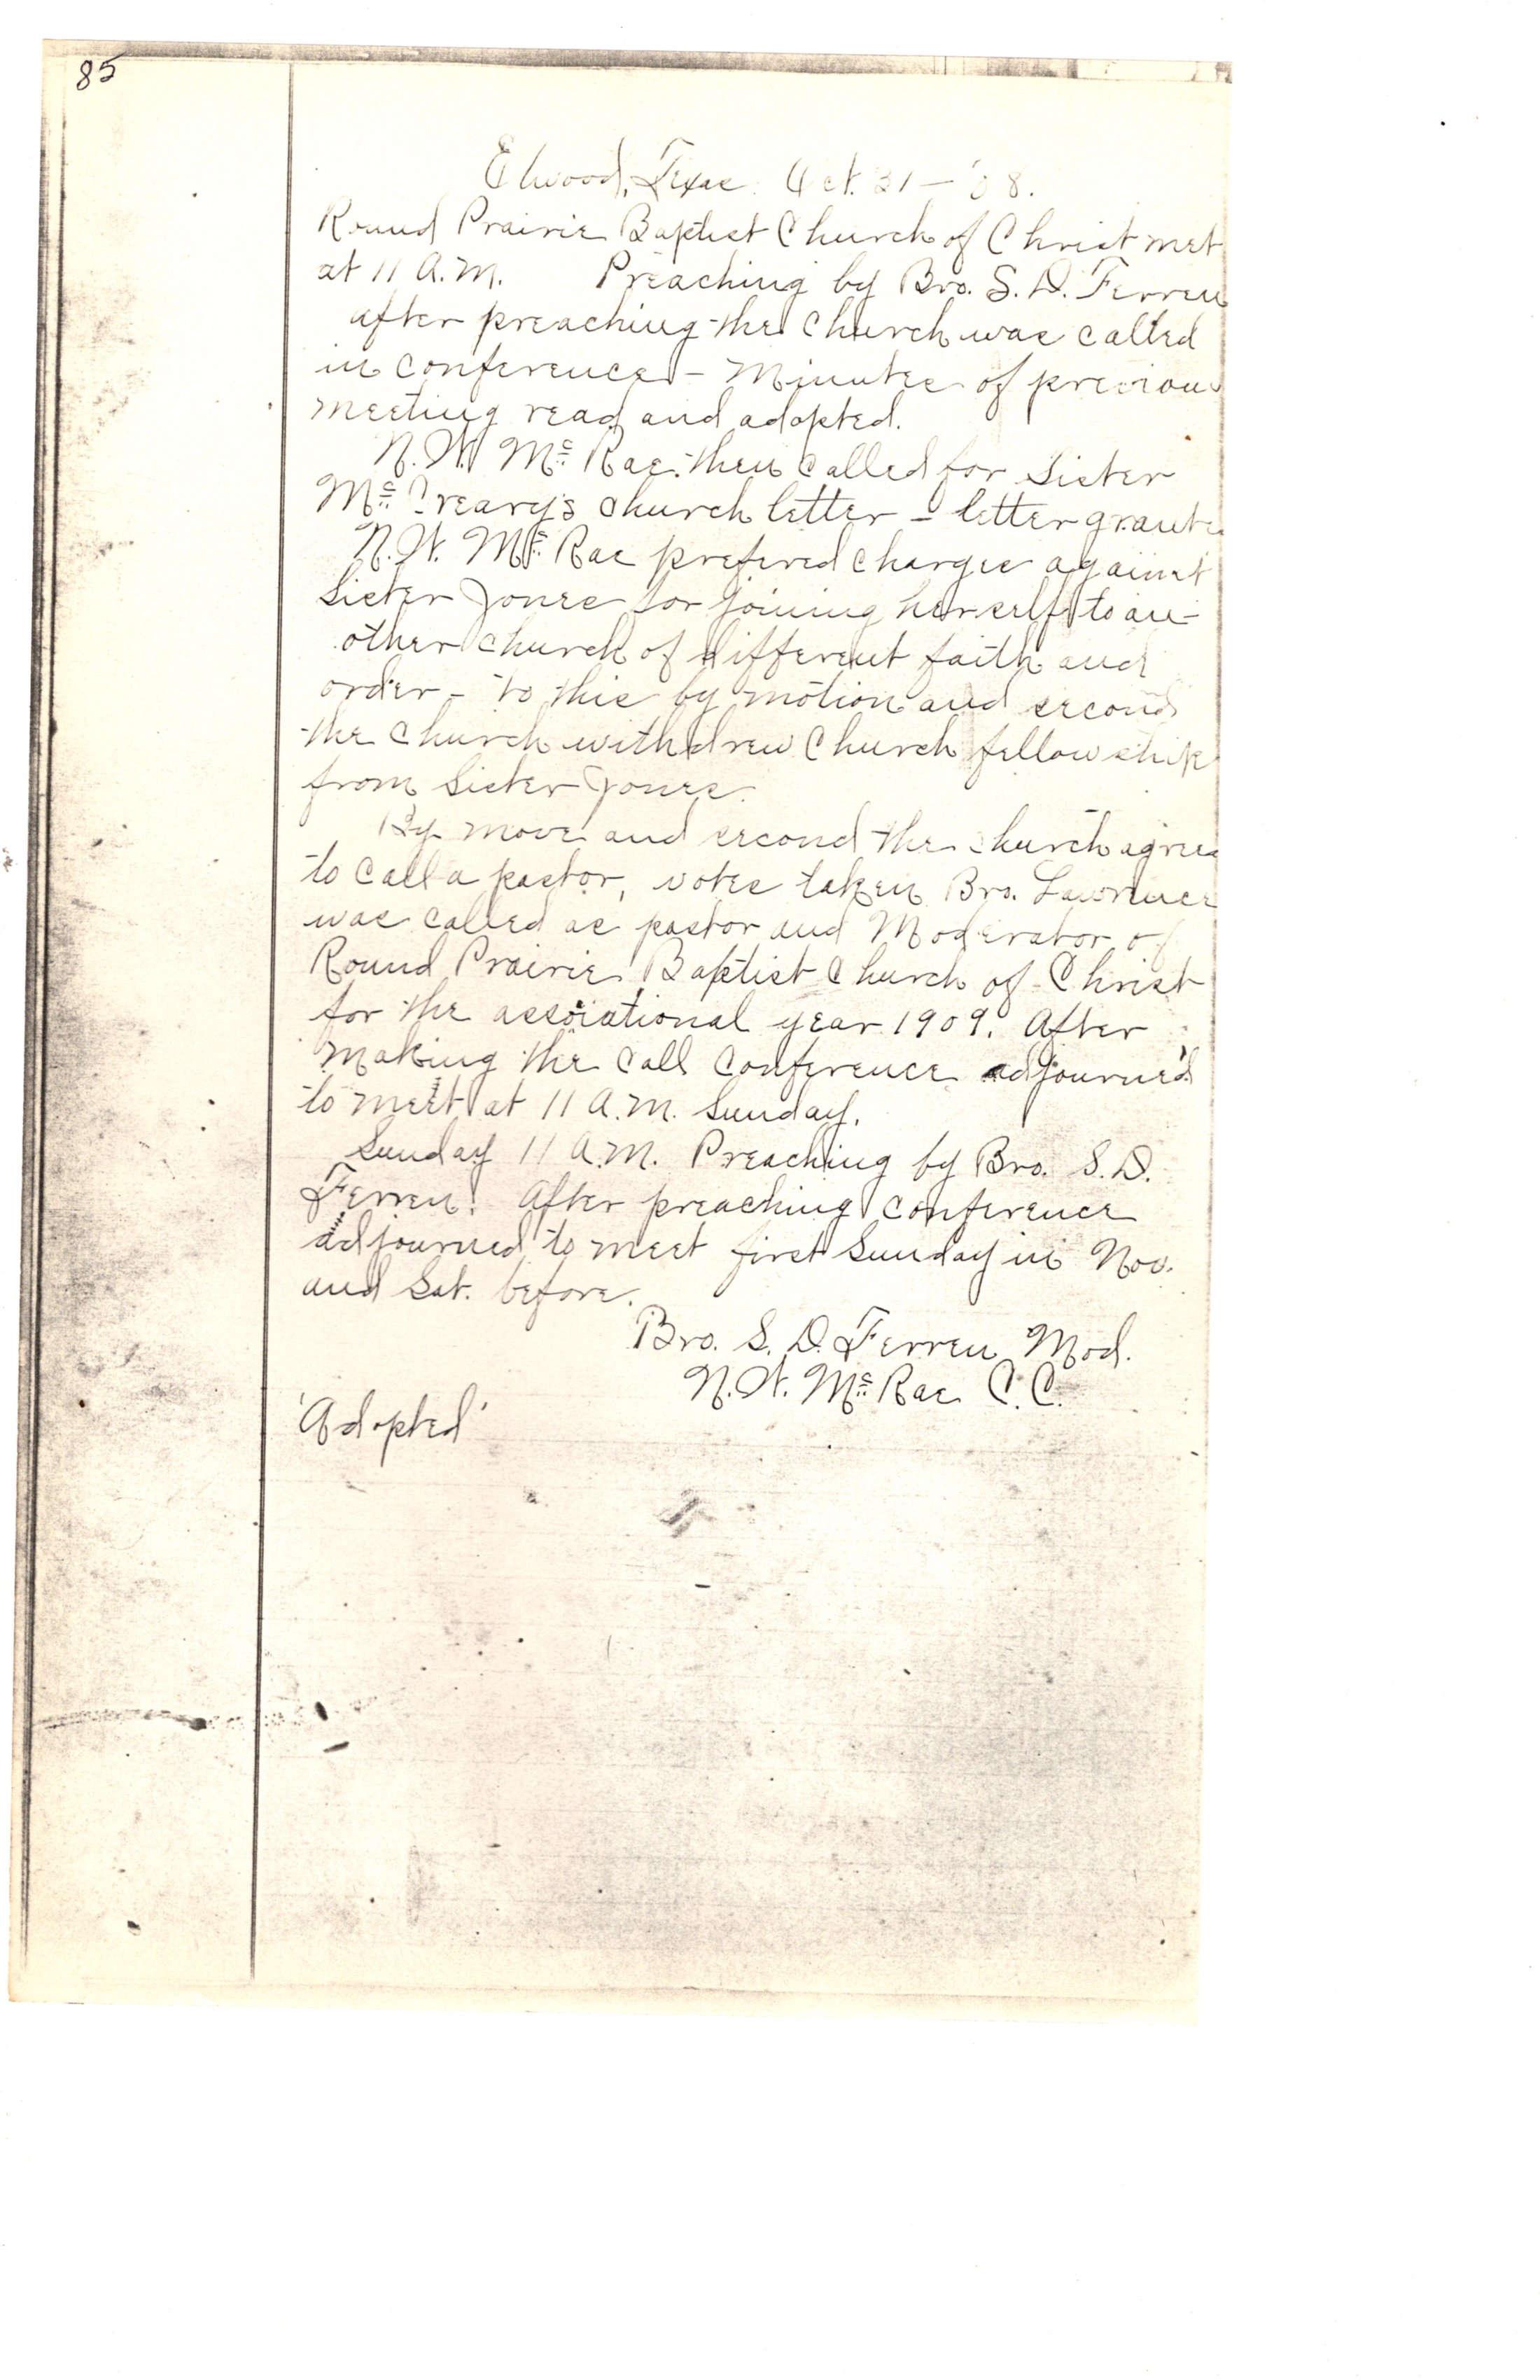 85
Elwood, Texas. Oct. 31 - '08.
Round Prairie Baptist Church of Christ met
at 11 A.M. Preaching by Bro. S. D. Ferren
after preaching the Church was called
in conference - Minutes of previous
meeting read and adopted.
N. W. McRae then called for Sister
McCreary's church letter - letter grante
N. W. McRae prefered charges against
Sister Jones for joining her self to an-
other church of different faith and
order - to this by motion and second
the Church withdrew Church fellowship
from Sister Jones.
By move and second the church agree
to call a pastor, votes taken Bro. Lawrence
was called as pastor and Moderator of
Round Prairie Baptist Church of Christ
for the associational year 1909. After
making the call conference adjourned
to meet at 11 A.M. Sunday.
Sunday 11 A.M. Preaching by Bro. S. D.
Ferren. After preaching conference
adjourned to meet first Sunday in Nov.
and Sat. before.
Bro. S. D. Ferren Mod.
N. W. McRae C. C.
'Adopted'